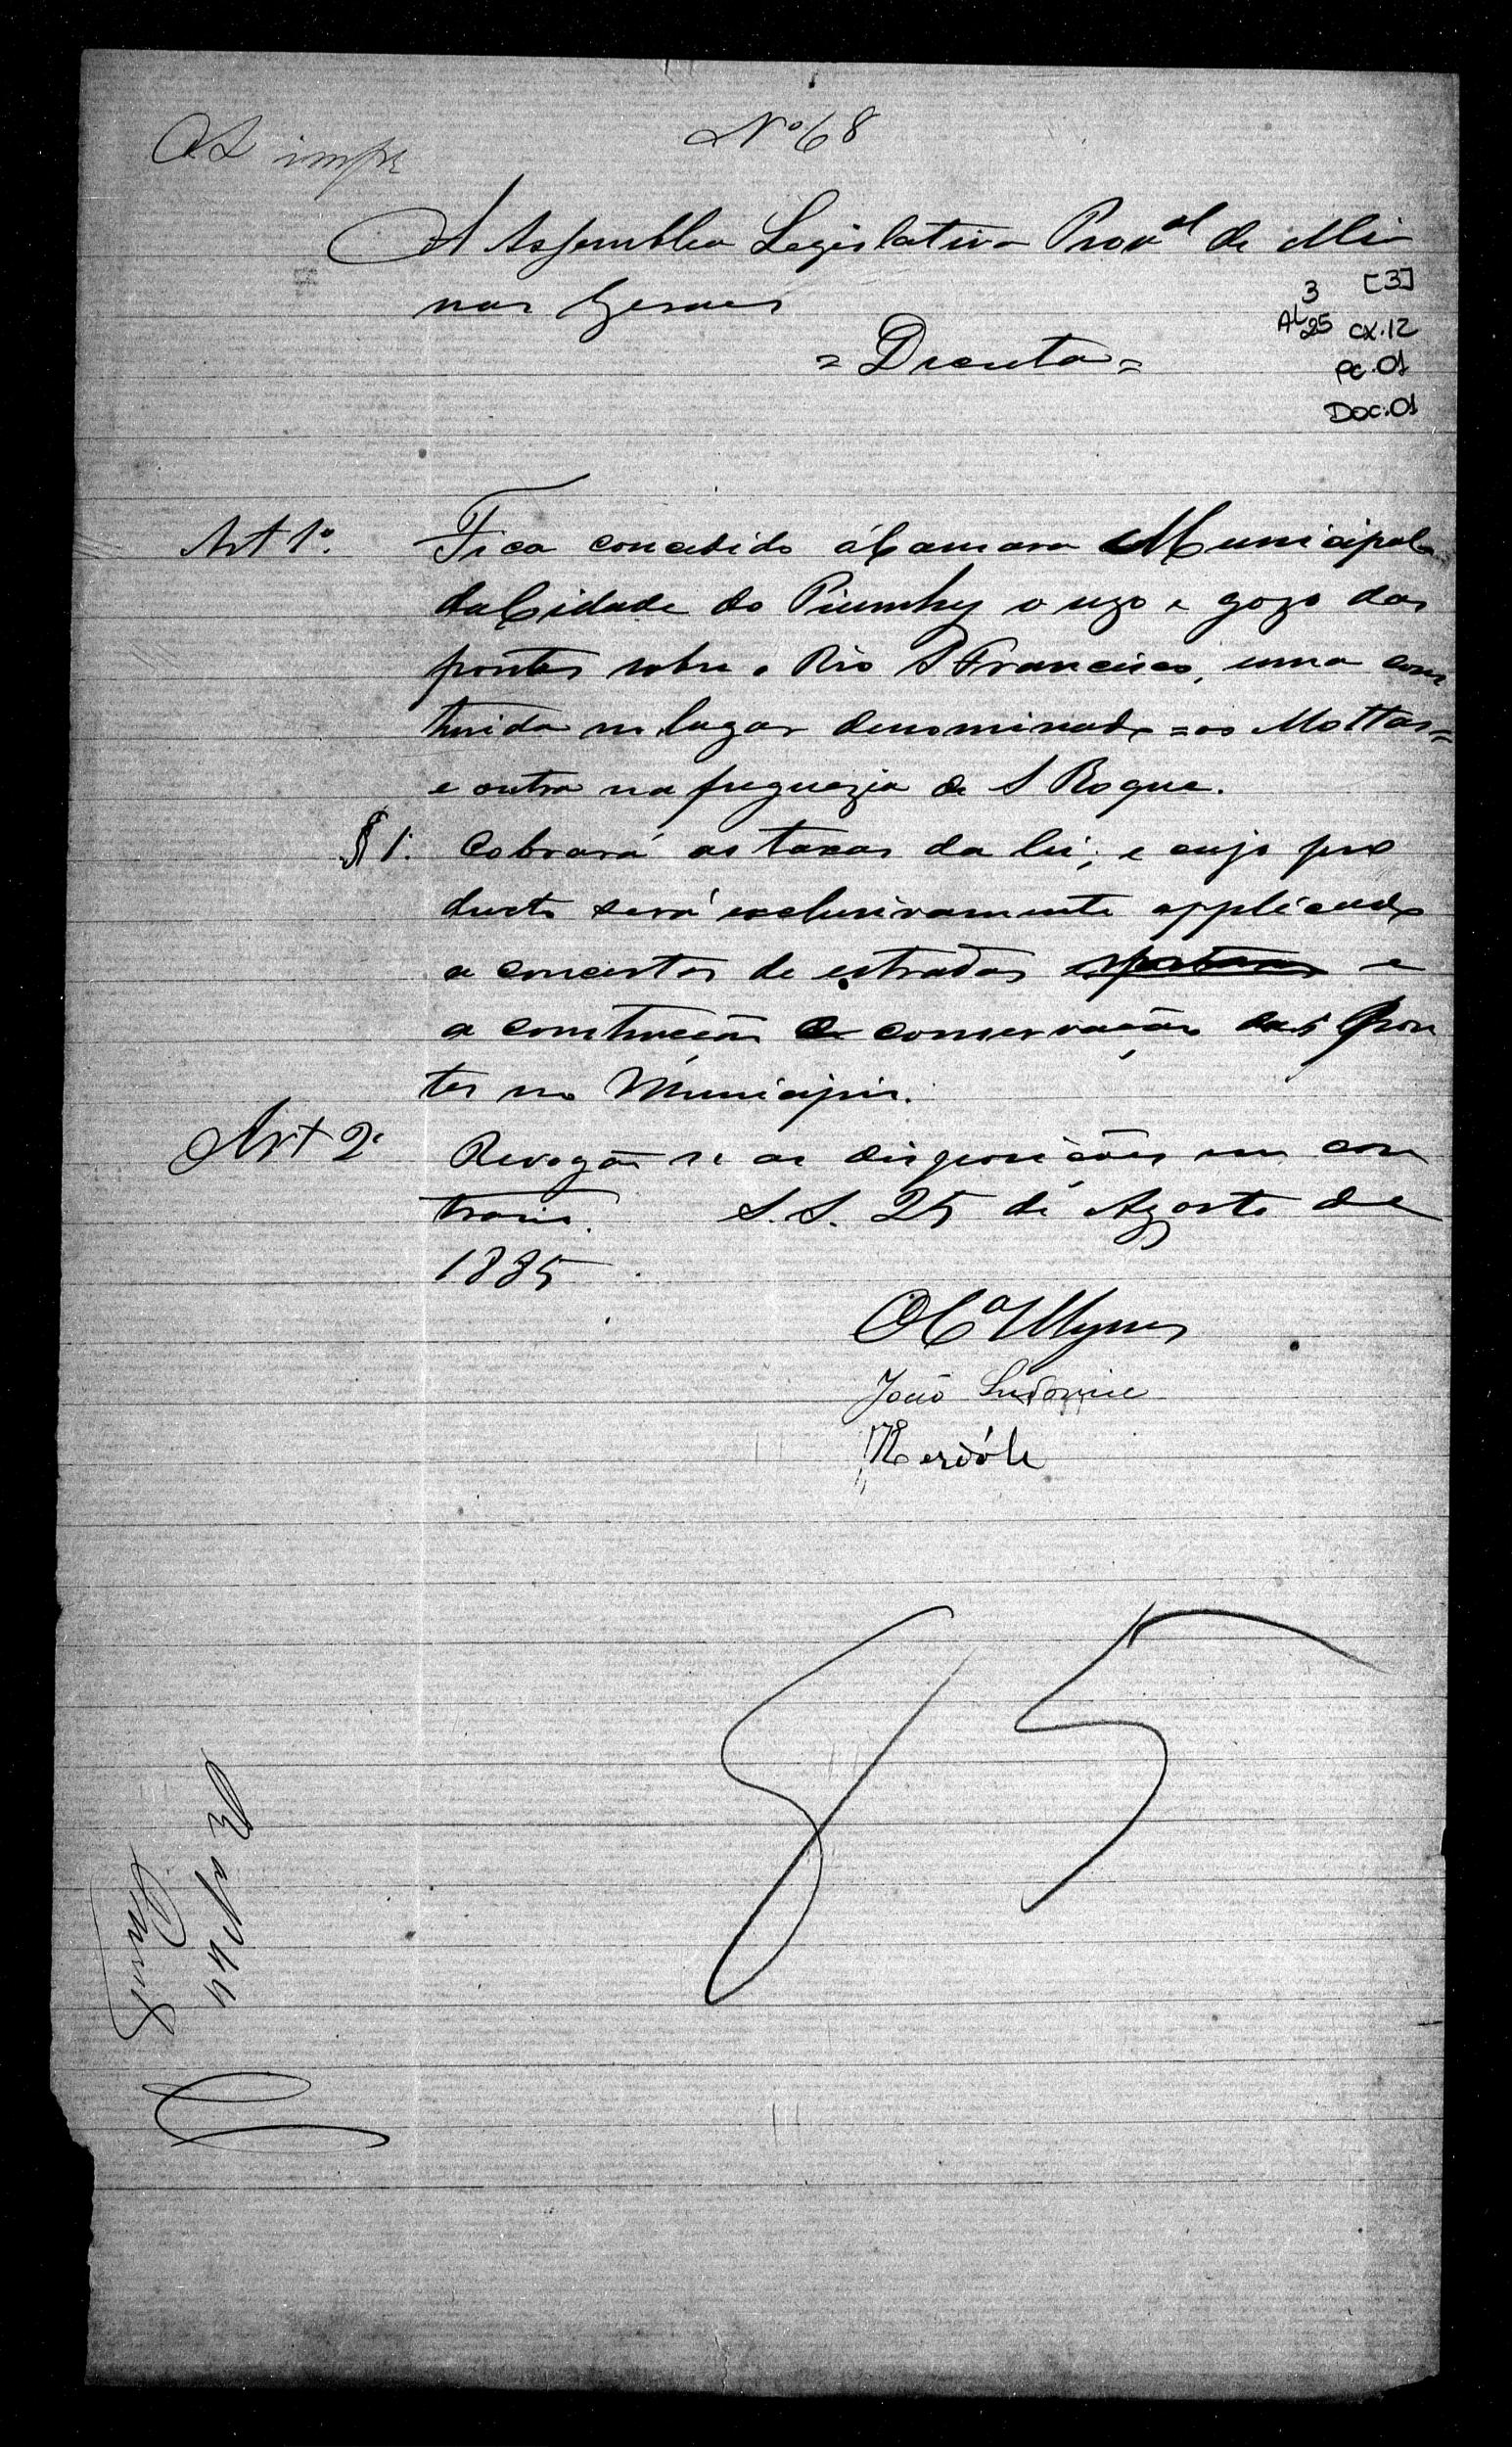 Nº 68
A Assemblea Legislativa Provᵃˡ de Mi
nas Geraes
= Decreta =
3 [3]
AL 25 CX.12
PC.01
DOC.01
Art 1º. Fica concedido á Camara Municipal
da Cidade do Piumhy o uzo e gozo das
pontes sobre o Rio S Francisco, uma cons
truida no lugar denominado = os Mottas =
e outra na freguezia de S Roque.
§ 1º. Cobrará as taxas da lei, e cujo pro
ducto será exclusivamente applicado
a concertos de estradas e
a construcção e conservação das pon
tes no Municipio.
Art 2º Revogão se as disposições em con
trario. S. S. 25 de Agosto de
1885
João Ludovice
85